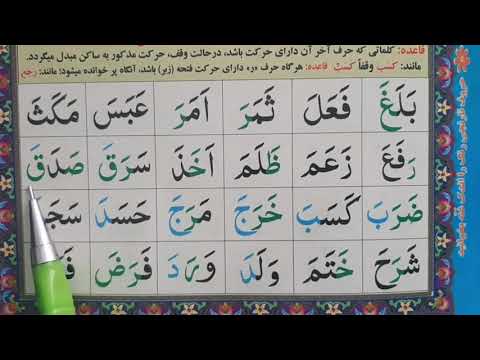 قاعده: کلماتی که حرف آخر آن دارای حرکت باشد، درحالت وقف، حرکت مذکور به ساکن مبدل میگردد.
مانند: کَسَبَ وقفاً کَسَبْ قاعده: هرگاه حرف «ر» دارای حرکت فتحه (زبر) باشد، آنگاه پر خوانده میشود؛ مانند: رجع
بَلَغَ فَعَلَ ثَمَرَ اَمَرَ عَبَسَ مَكَثَ
رَفَعَ زَعَمَ ظَلَمَ اَخَذَ سَرَقَ صَدَقَ
ضَرَبَ كَسَبَ خَرَجَ مَرَجَ حَسَدَ
شَرَحَ خَتَمَ وَلَدَ وَرَدَ فَرَضَ